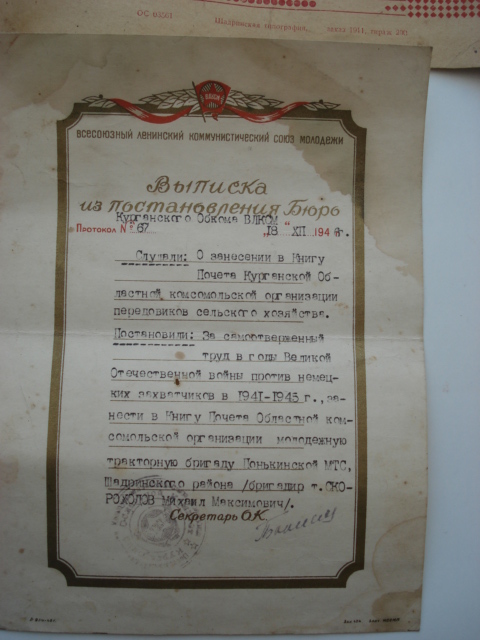 ОС 03561 Шадринская типография, заказ 2011, тираж
ВСЕСОЮЗНЫЙ ЛЕНИНСКИЙ КОММУНИСТИЧЕСКИЙ СОЮЗ МОЛОДЕЖИ
Выписка
из постановления Бюро
Курганского Обкома ВЛКСМ
Протокол № 67 "18" XII 194 г.
Слушали: О занесении в Книгу
Почета Курганской Об-
ластной комсомольской организации
передовиков сельского хозяйства.
Постановили: За самоотверженный
труд в годы Великой
Отечественной войны против немец-
ких захватчиков в 1941-1945 г., за-
нести в Книгу Почета Областной ком-
сомольской организации молодежную
тракторную бригаду Понькинской МТС,
Шадринского района /бригадир т.СКО-
РОХОДОВ Михаил Максимович/.
Секретарь ОК